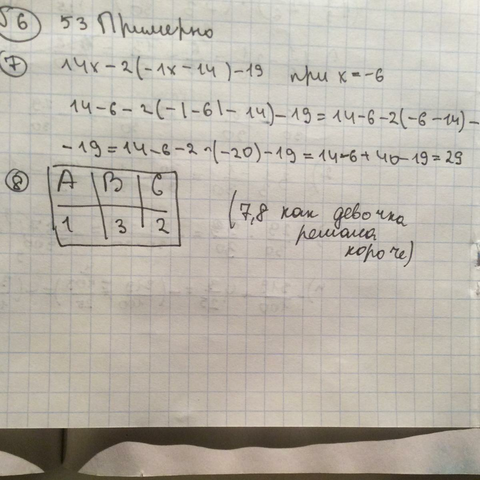 №6 53 Примерно
7 14x-2(-1x-14)-19 при x=-6
14-6-2(-|-6|-14)-19=14-6-2(-6-14)-
-19=14-6-2·(-20)-19=14-6+40-19=29
8 А В С
1 3 2
(7,8 как девочка
решала
короче)